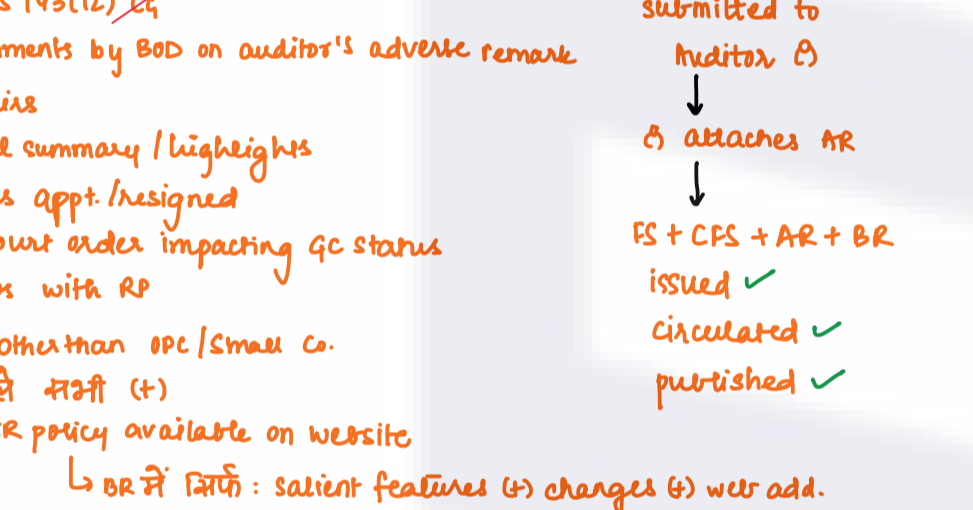 s 143(12) CG
ments by BOD on auditor's adverse remark
irs
l summary / highlights
s appt. / resigned
ourt order impacting GC status
s with RP
other than OPC / Small Co.
सभी (+)
R policy available on website
↳ BR में सिर्फ : salient features (+) changes (+) web add.
submitted to
Auditor
↓
attaches AR
↓
FS + CFS + AR + BR
issued ✓
circulated ✓
published ✓